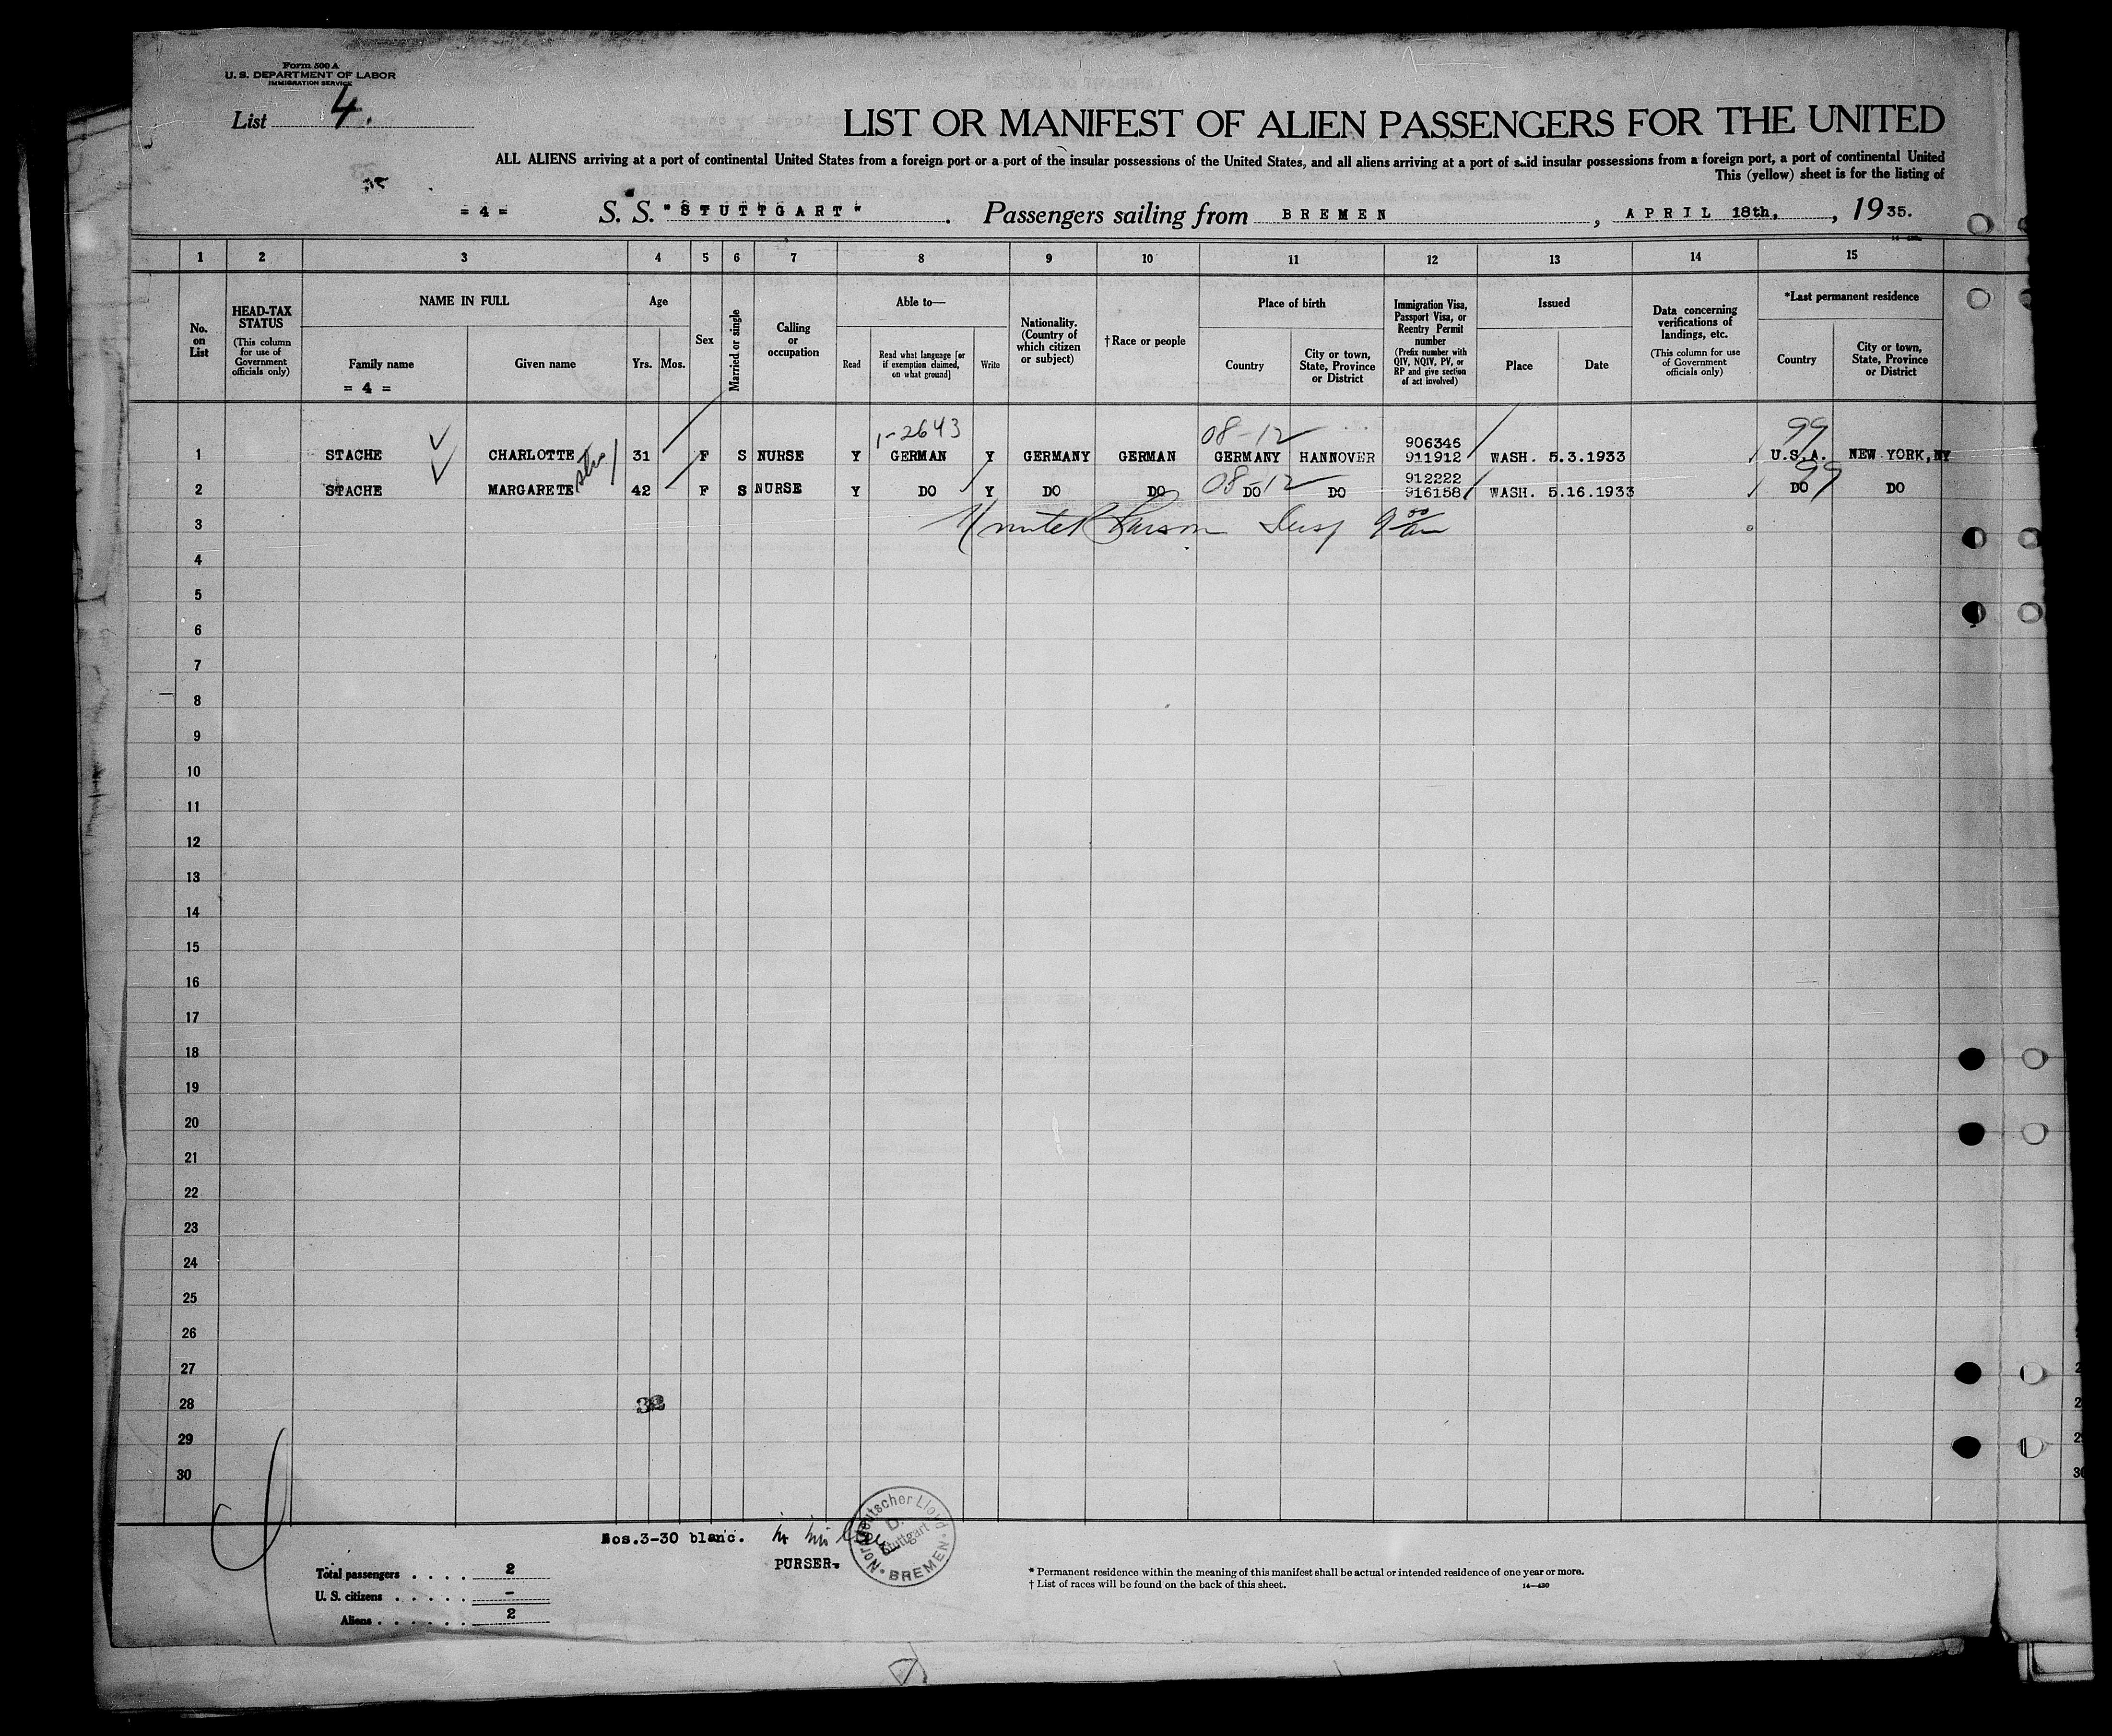 Form 500 A
U. S. DEPARTMENT OF LABOR
IMMIGRATION SERVICE
List 4.
LIST OR MANIFEST OF ALIEN PASSENGERS FOR THE UNITED
ALL ALIENS arriving at a port of continental United States from a foreign port or a port of the insular possessions of the United States, and all aliens arriving at a port of said insular possessions from a foreign port, a port of continental United
This (yellow) sheet is for the listing of
= 4 = S. S. "STUTTGART". Passengers sailing from BREMEN, APRIL 18th, , 1935.
1 2 3 4 5 6 7 8 9 10 11 12 13 14 15
No. on List
HEAD-TAX STATUS
(This column for use of Government officials only)
NAME IN FULL
Family name
= 4 =
Given name
Age
Yrs. Mos.
Sex
Married or single
Calling or occupation
Able to—
Read
Read what language [or if exemption claimed, on what ground]
Write
Nationality. (Country of which citizen or subject)
† Race or people
Place of birth
Country
City or town, State, Province or District
Immigration Visa, Passport Visa, or Reentry Permit number
(Prefix number with QIV, NQIV, PV, or RP and give section of act involved)
Issued
Place
Date
Data concerning verifications of landings, etc.
(This column for use of Government officials only)
*Last permanent residence
Country
City or town, State, Province or District
1-2643 08-12 99
906346
1 STACHE CHARLOTTE 31 F S NURSE Y GERMAN Y GERMANY GERMAN GERMANY HANNOVER 911912 WASH. 5.3.1933 U.S.A. NEW YORK,NY
08-12 912222 99
2 STACHE MARGARETE 42 F S NURSE Y DO Y DO DO DO DO 916158 WASH. 5.16.1933 DO DO
3
4
5
6
7
8
9
10
11
12
13
14
15
16
17
18
19
20
21
22
23
24
25
26
27
28 32
29
30
Nos.3-30 blanc.
PURSER.
Norddeutscher Lloyd
D. Stuttgart
BREMEN
Total passengers . . . . 2
U. S. citizens . . . . . -
Aliens . . . . . . 2
* Permanent residence within the meaning of this manifest shall be actual or intended residence of one year or more.
† List of races will be found on the back of this sheet. 14—430